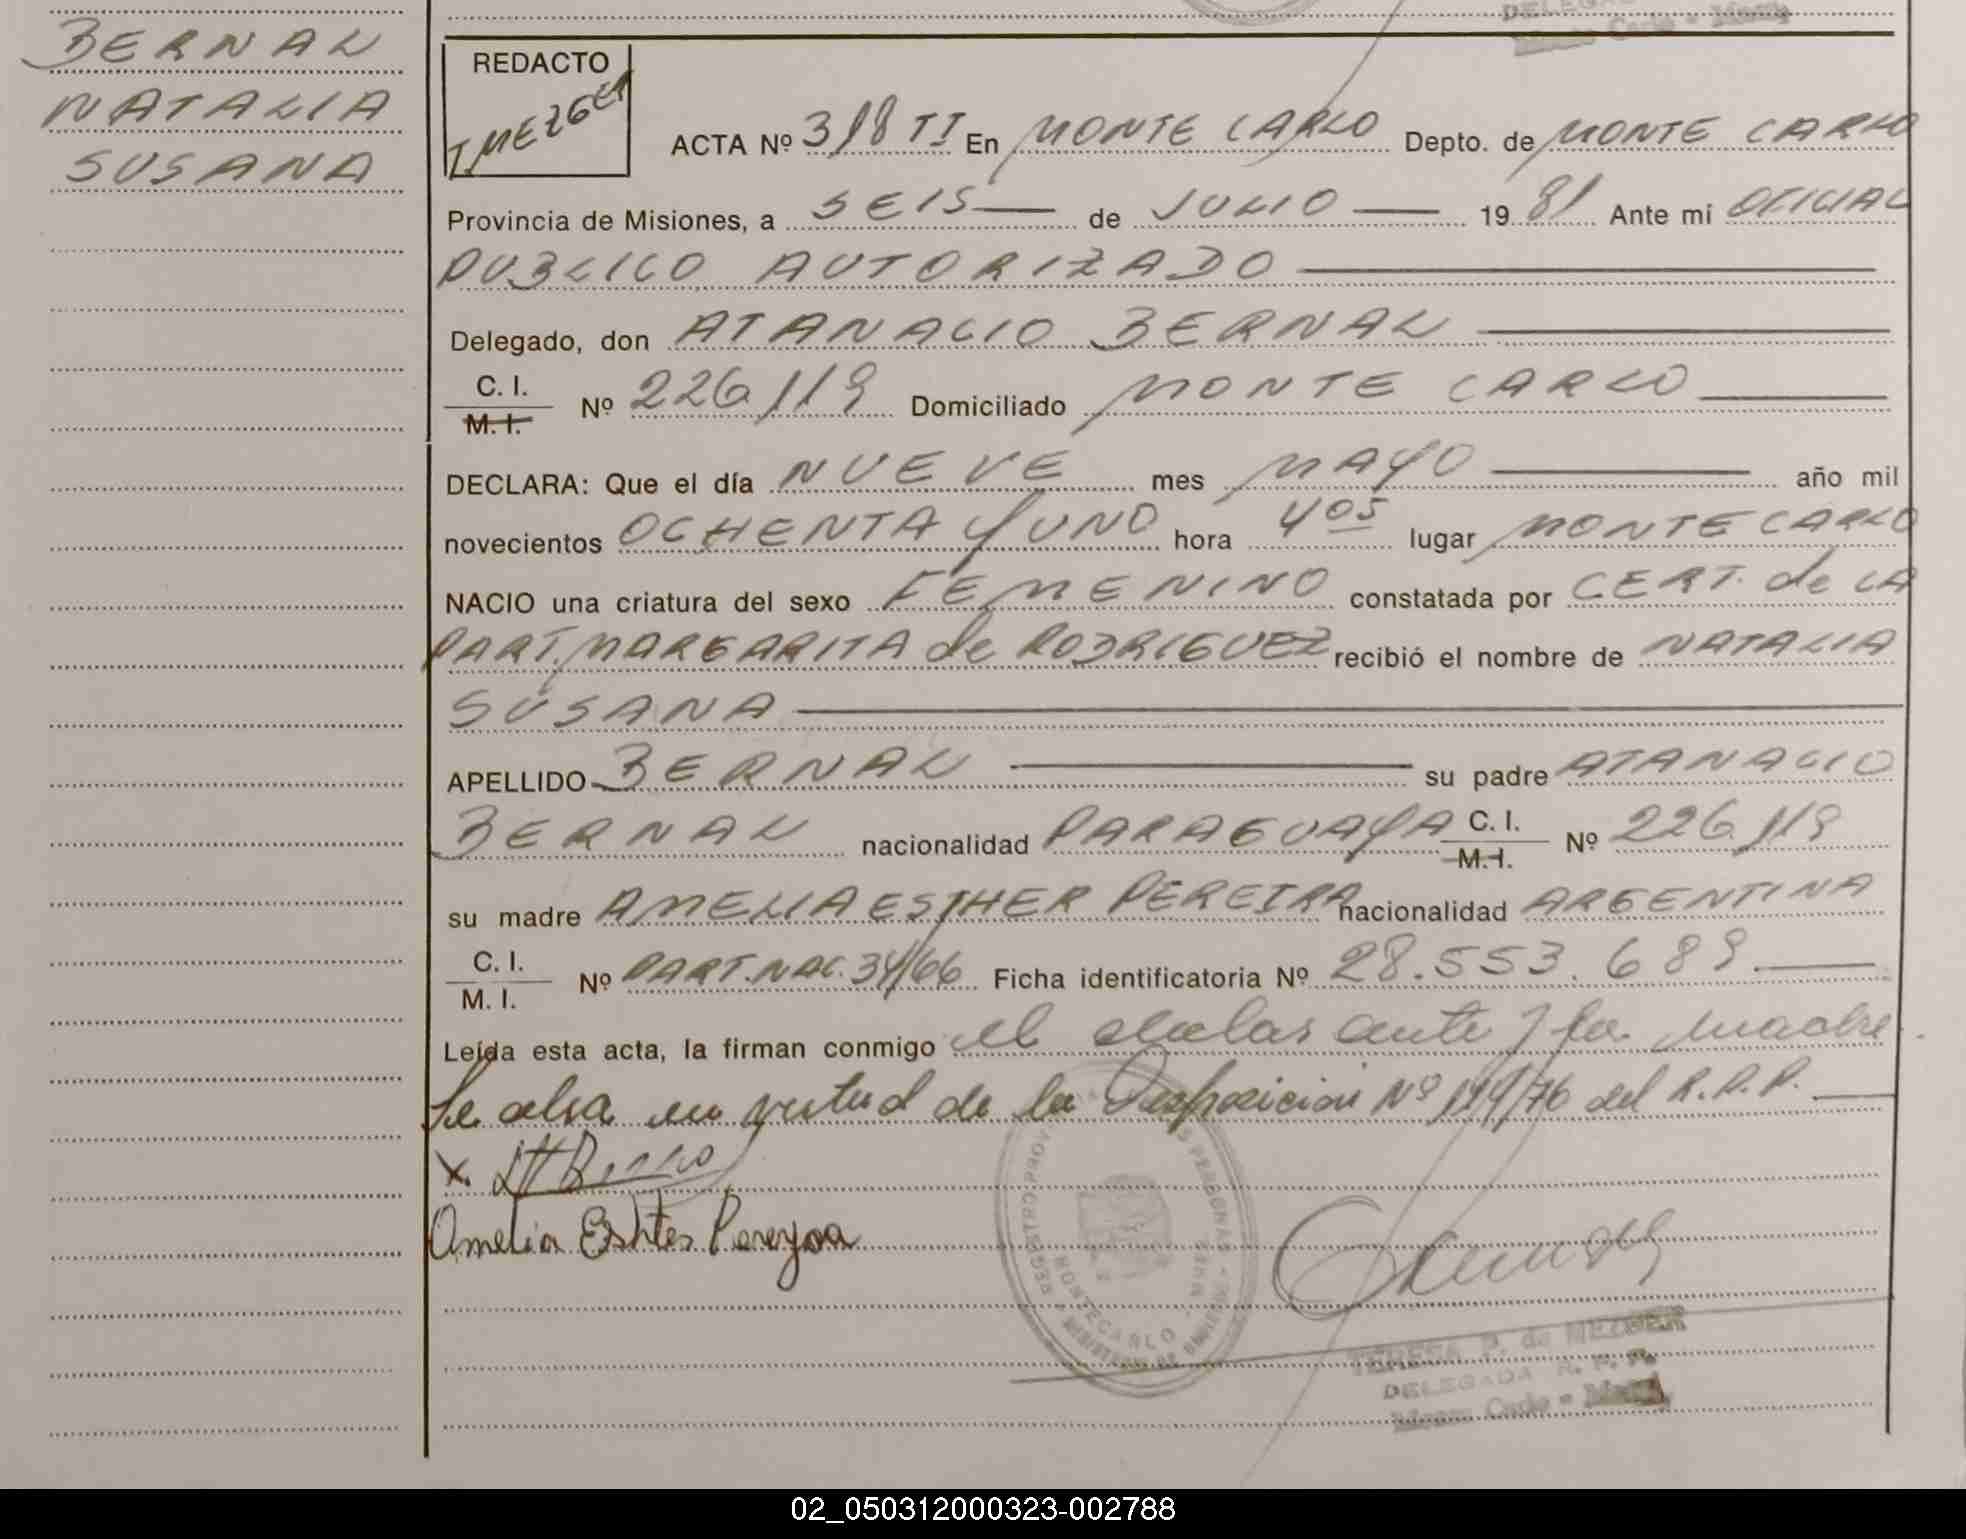 BERNAL
NATALIA
SUSANA
REDACTO
ACTA Nº 318 TI En MONTE CARLO Depto. de MONTE CARLO
Provincia de Misiones, a SEIS de JULIO 1981 Ante mí OFICIAL
PUBLICO AUTORIZADO
Delegado, don ATANACIO BERNAL
C. I.
M. I. Nº 226.119 Domiciliado MONTE CARLO
DECLARA: Que el día NUEVE mes MAYO año mil
novecientos OCHENTA Y UNO hora 4 05 lugar MONTE CARLO
NACIO una criatura del sexo FEMENINO constatada por CERT. de LA
PART. MARGARITA de RODRIGUEZ recibió el nombre de NATALIA
SUSANA
APELLIDO BERNAL su padre ATANACIO
BERNAL nacionalidad PARAGUAYA C. I. M. I. Nº 226.119
su madre AMELIA ESTHER PEREIRA nacionalidad ARGENTINA
C. I.
M. I. Nº PART. NAC. 34/66 Ficha identificatoria Nº 28.553.689
Leída esta acta, la firman conmigo el declarante y la madre.
Se alsa en virtud de la Disposicion Nº 119/76 del R.P.P.
X.
Amelia Eshter Pereyra
MONTECARLO
TERESA P. de MEZGER
DELEGADA R. P. P.
Monte Carlo - Mnes.
02_050312000323-002788